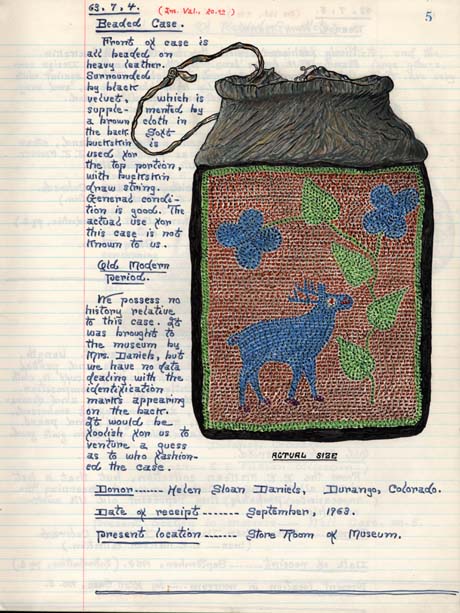 63. 7. 4. (Ins. Val., 20.00)
5
Beaded Case.
Front of case is
all beaded on
heavy leather.
Surrounded
by black
velvet, which is
supple- mented by
a brown cloth in
the back. Soft
buckskin is
used for
the top portion,
with buckskin
draw string.
General condi-
tion is good. The
actual use for
this case is not
known to us.
Old Modern
period.
We possess no
history relative
to this case. It
was brought to
the museum by
Mrs. Daniels, but
we have no data
dealing with the
identification
marks appearing
on the back.
It would be
foolish for us to
venture a guess
as to who fashion-
ed the case.
ACTUAL SIZE
Donor ------- Helen Sloan Daniels, Durango, Colorado.
Date of receipt ------- September, 1963.
Present location ------- Store Room of Museum.